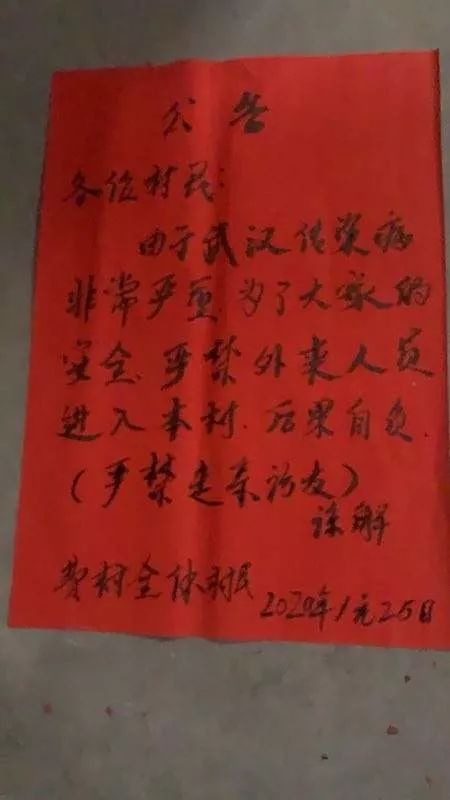 公告
各位村民:
由于武汉传染病
非常严重,为了大家的
安全、严禁外来人员
进入本村.后果自负.
(严禁走亲访友)
谅解
村全体村民
2020年1元25日